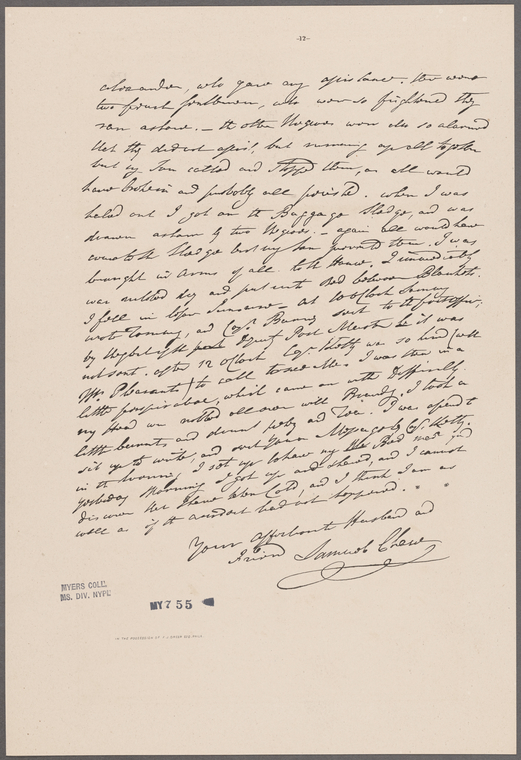 -12-
alexander, who gave any assistance. there were
two french Gentlemen, who were so frightened they
ran ashore. — the other Negroes were also so alarmed
that they did not assist, but running up all together
but my Son called and stopped them, or all would
have broken in and probably all perished. when I was
haled out I got on the Baggage Sledge, and was
drawn ashore by two Negroes. — again all would have
come to the Sledge but my Son prevented them. I was
brought in arms of all to the House, I immediately
was rubbed dry and put into Bed between Blankets.
I fell in before Sunrise — at 10 oClock Sunday
went Tommy, and Cops. Bunny sent to the post office,
by neglect of the Deputy Post Master he it was
not sent. after 12 oClock Cops. Scott was so kind (with
Mr. Pleasants) to call to see Me. I was then in a
little perspiration, which came on with Difficulty.
my Head was rubbed all over with Brandy. I took a
little and and Tea. I was
sit up to write, and sent your by Cops. Scotty.
in the Evening I sat up to have my Bed made and
yesterday Morning I got up and shaved, and I cannot
discover that I have taken Cold, and I think I am as
well as if the accident had not happened.
Your affectionate Husband and
Friend Samuel Chew
MYERS COLL.
MS. DIV. NYPL
MY 7 55
IN THE POSSESSION OF